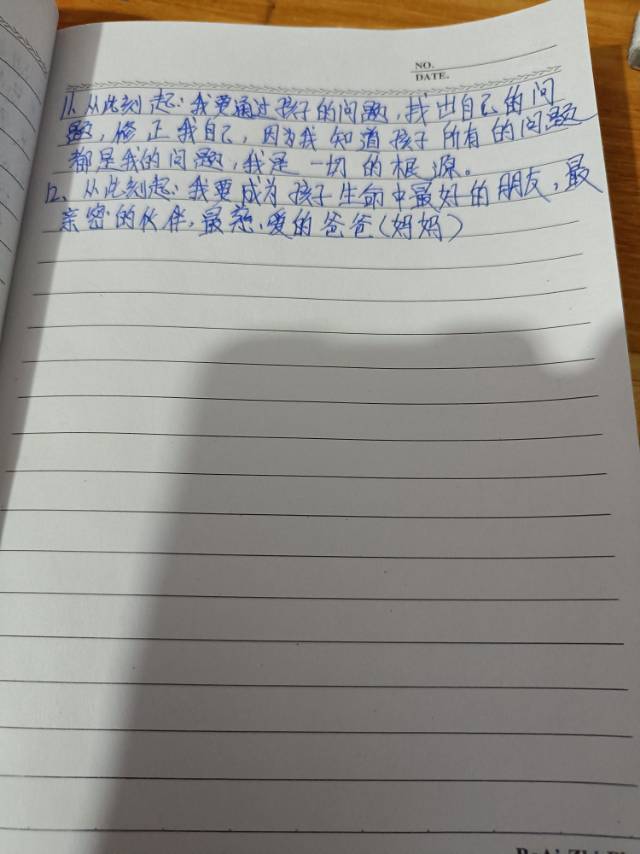 NO.
DATE.
11、从此刻起：我要通过孩子的问题，找出自己的问
题，修正我自己，因为我知道孩子所有的问题
都是我的问题，我是一切的根源。
12、从此刻起：我要成为孩子生命中最好的朋友，最
亲密的伙伴，最慈爱的爸爸（妈妈）